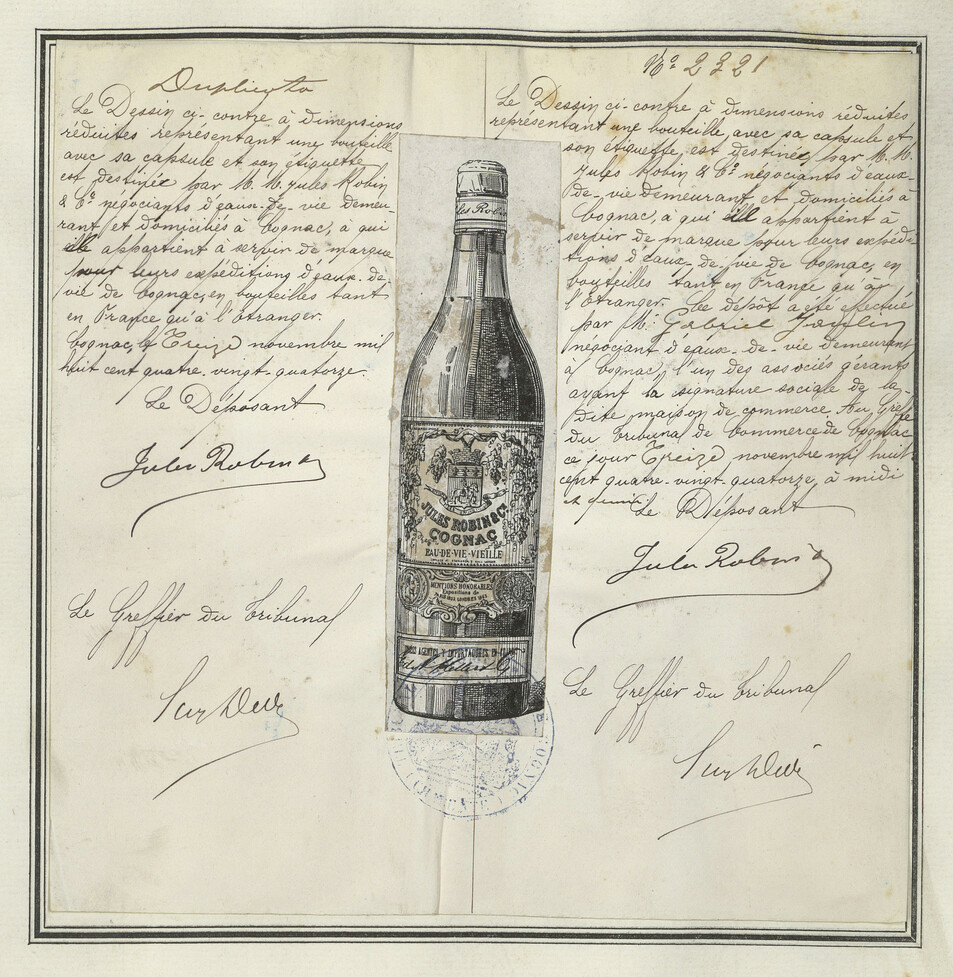 Duplicata
Le Dessin ci-contre à dimensions
réduites représentant une bouteille
avec sa capsule et son étiquette
est destinée par M. M. Jules Robin
& Cie négociants d'eaux-de-vie demeu-
rant et domiciliés à Cognac, à qui
elle appartient à servir de marque
pour leurs expéditions d'eaux-de-
vie de Cognac, en bouteilles tant
en France qu'à l'Etranger.
Cognac, le Treize novembre mil
huit cent quatre-vingt-quatorze.
Le Déposant
Jules Robin
Le Greffier du Tribunal
les Robin
JULES ROBIN & Cie
COGNAC
EAU-DE-VIE-VIEILLE
MENTIONS HONORABLES
Expositions de
LONDRES
AGENTES
No 2321
Le Dessin ci-contre à dimensions réduites
représentant une bouteille, avec sa capsule et
son étiquette, est destinée, par M. M.
Jules Robin & Cie négociants d'eaux-
de-vie demeurant et domiciliés à
Cognac, à qui elle appartient à
servir de marque pour leurs expédi-
tions d'eaux-de-vie de Cognac, en
bouteilles tant en France qu'à
l'étranger. Ce dépôt a été effectué
par M. Gabriel
négociant d'eaux-de-vie demeurant
à Cognac, l'un des associés gérants
ayant la signature sociale de la
dite maison de commerce. Au Greffe
du Tribunal de Commerce de Cognac
ce jour Treize novembre mil huit
cent quatre-vingt-quatorze, à midi
et
Le Déposant
Jules Robin
Le Greffier du Tribunal